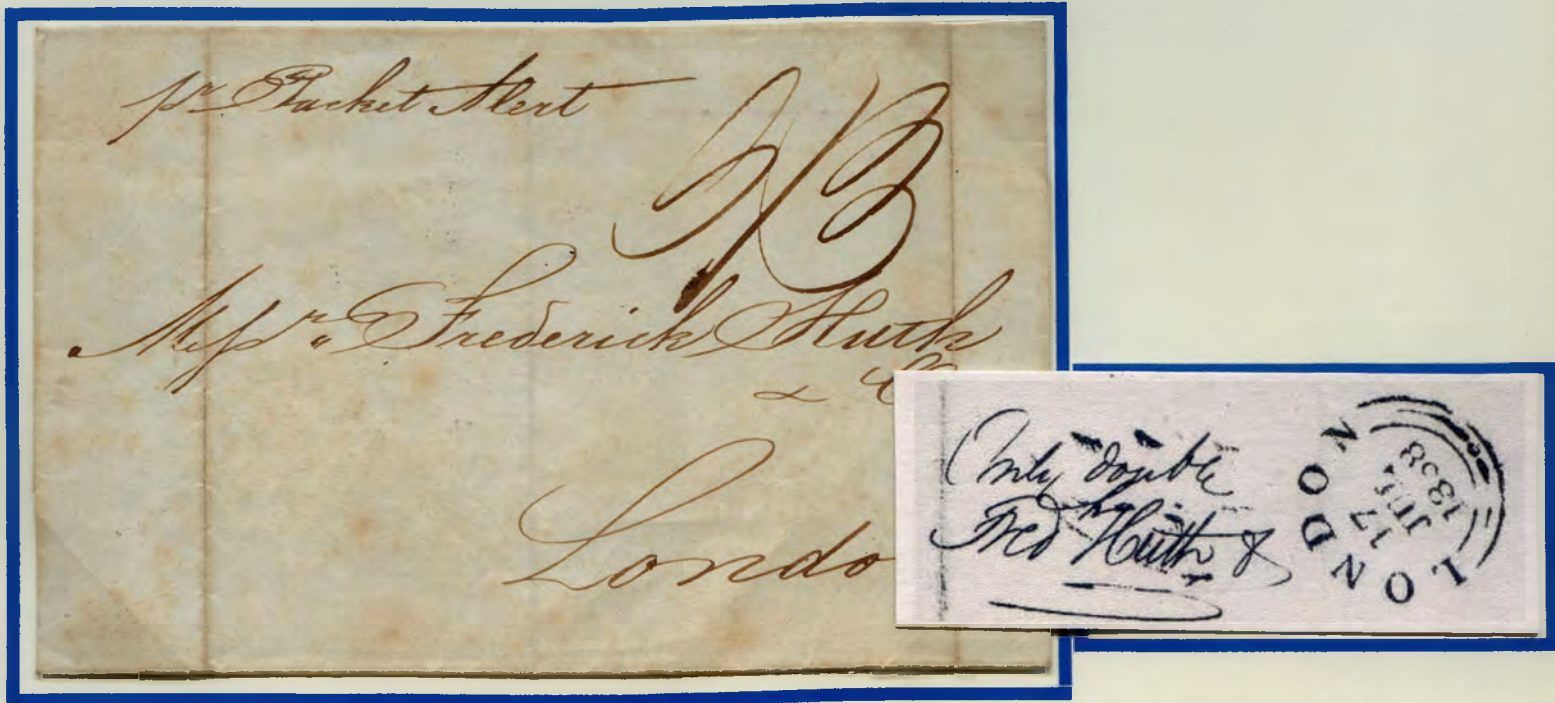 pr Packet Alert
Messrs. Frederick Huth
& C
Londo
Only double
Fred Huth &
LONDON
17
1838